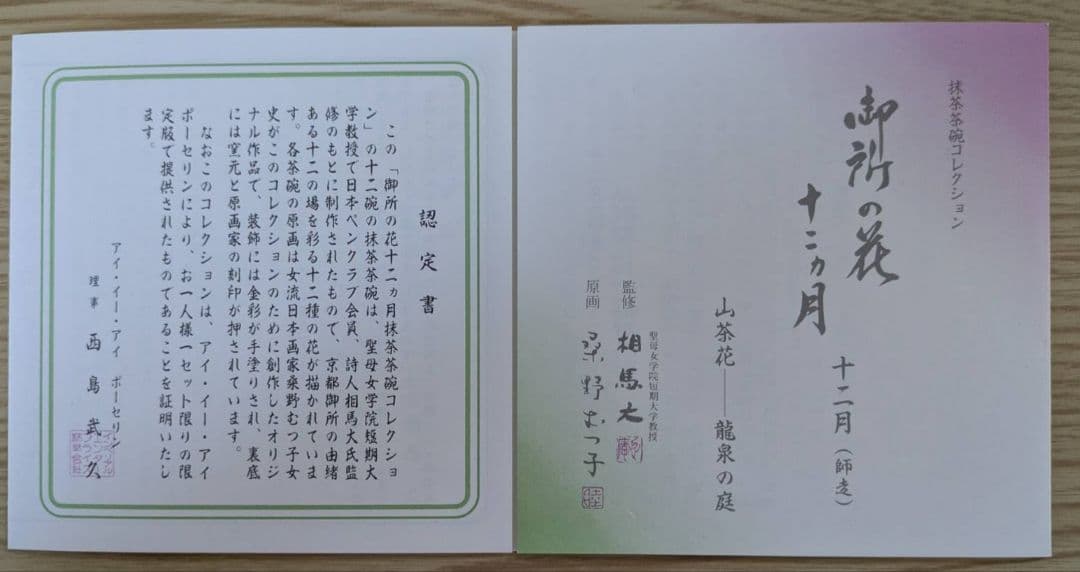 抹茶茶碗コレクション
御所の花
十二ヵ月
十二月(師走)
山茶花――龍泉の庭
聖母女学院短期大学教授
監修 相馬大
原画 桑野むつ子
認定書
この「御所の花十二ヵ月抹茶茶碗コレクショ
ン」の十二碗の抹茶茶碗は、聖母女学院短期大
学教授で日本ペンクラブ会員、詩人相馬大氏監
修のもとに制作されたもので、京都御所の由緒
ある十二の場を彩る十二種の花が描かれていま
す。各茶碗の原画は女流日本画家桑野むつ子女
史がこのコレクションのために創作したオリジ
ナル作品で、装飾には金彩が手塗りされ、裏底
には窯元と原画家の刻印が押されています。
なおこのコレクションは、アイ・イー・アイ
ポーセリンにより、お一人様一セット限りの限
定版で提供されたものであることを証明いたし
ます。
アイ・イー・アイ ポーセリン
理事 西島武久